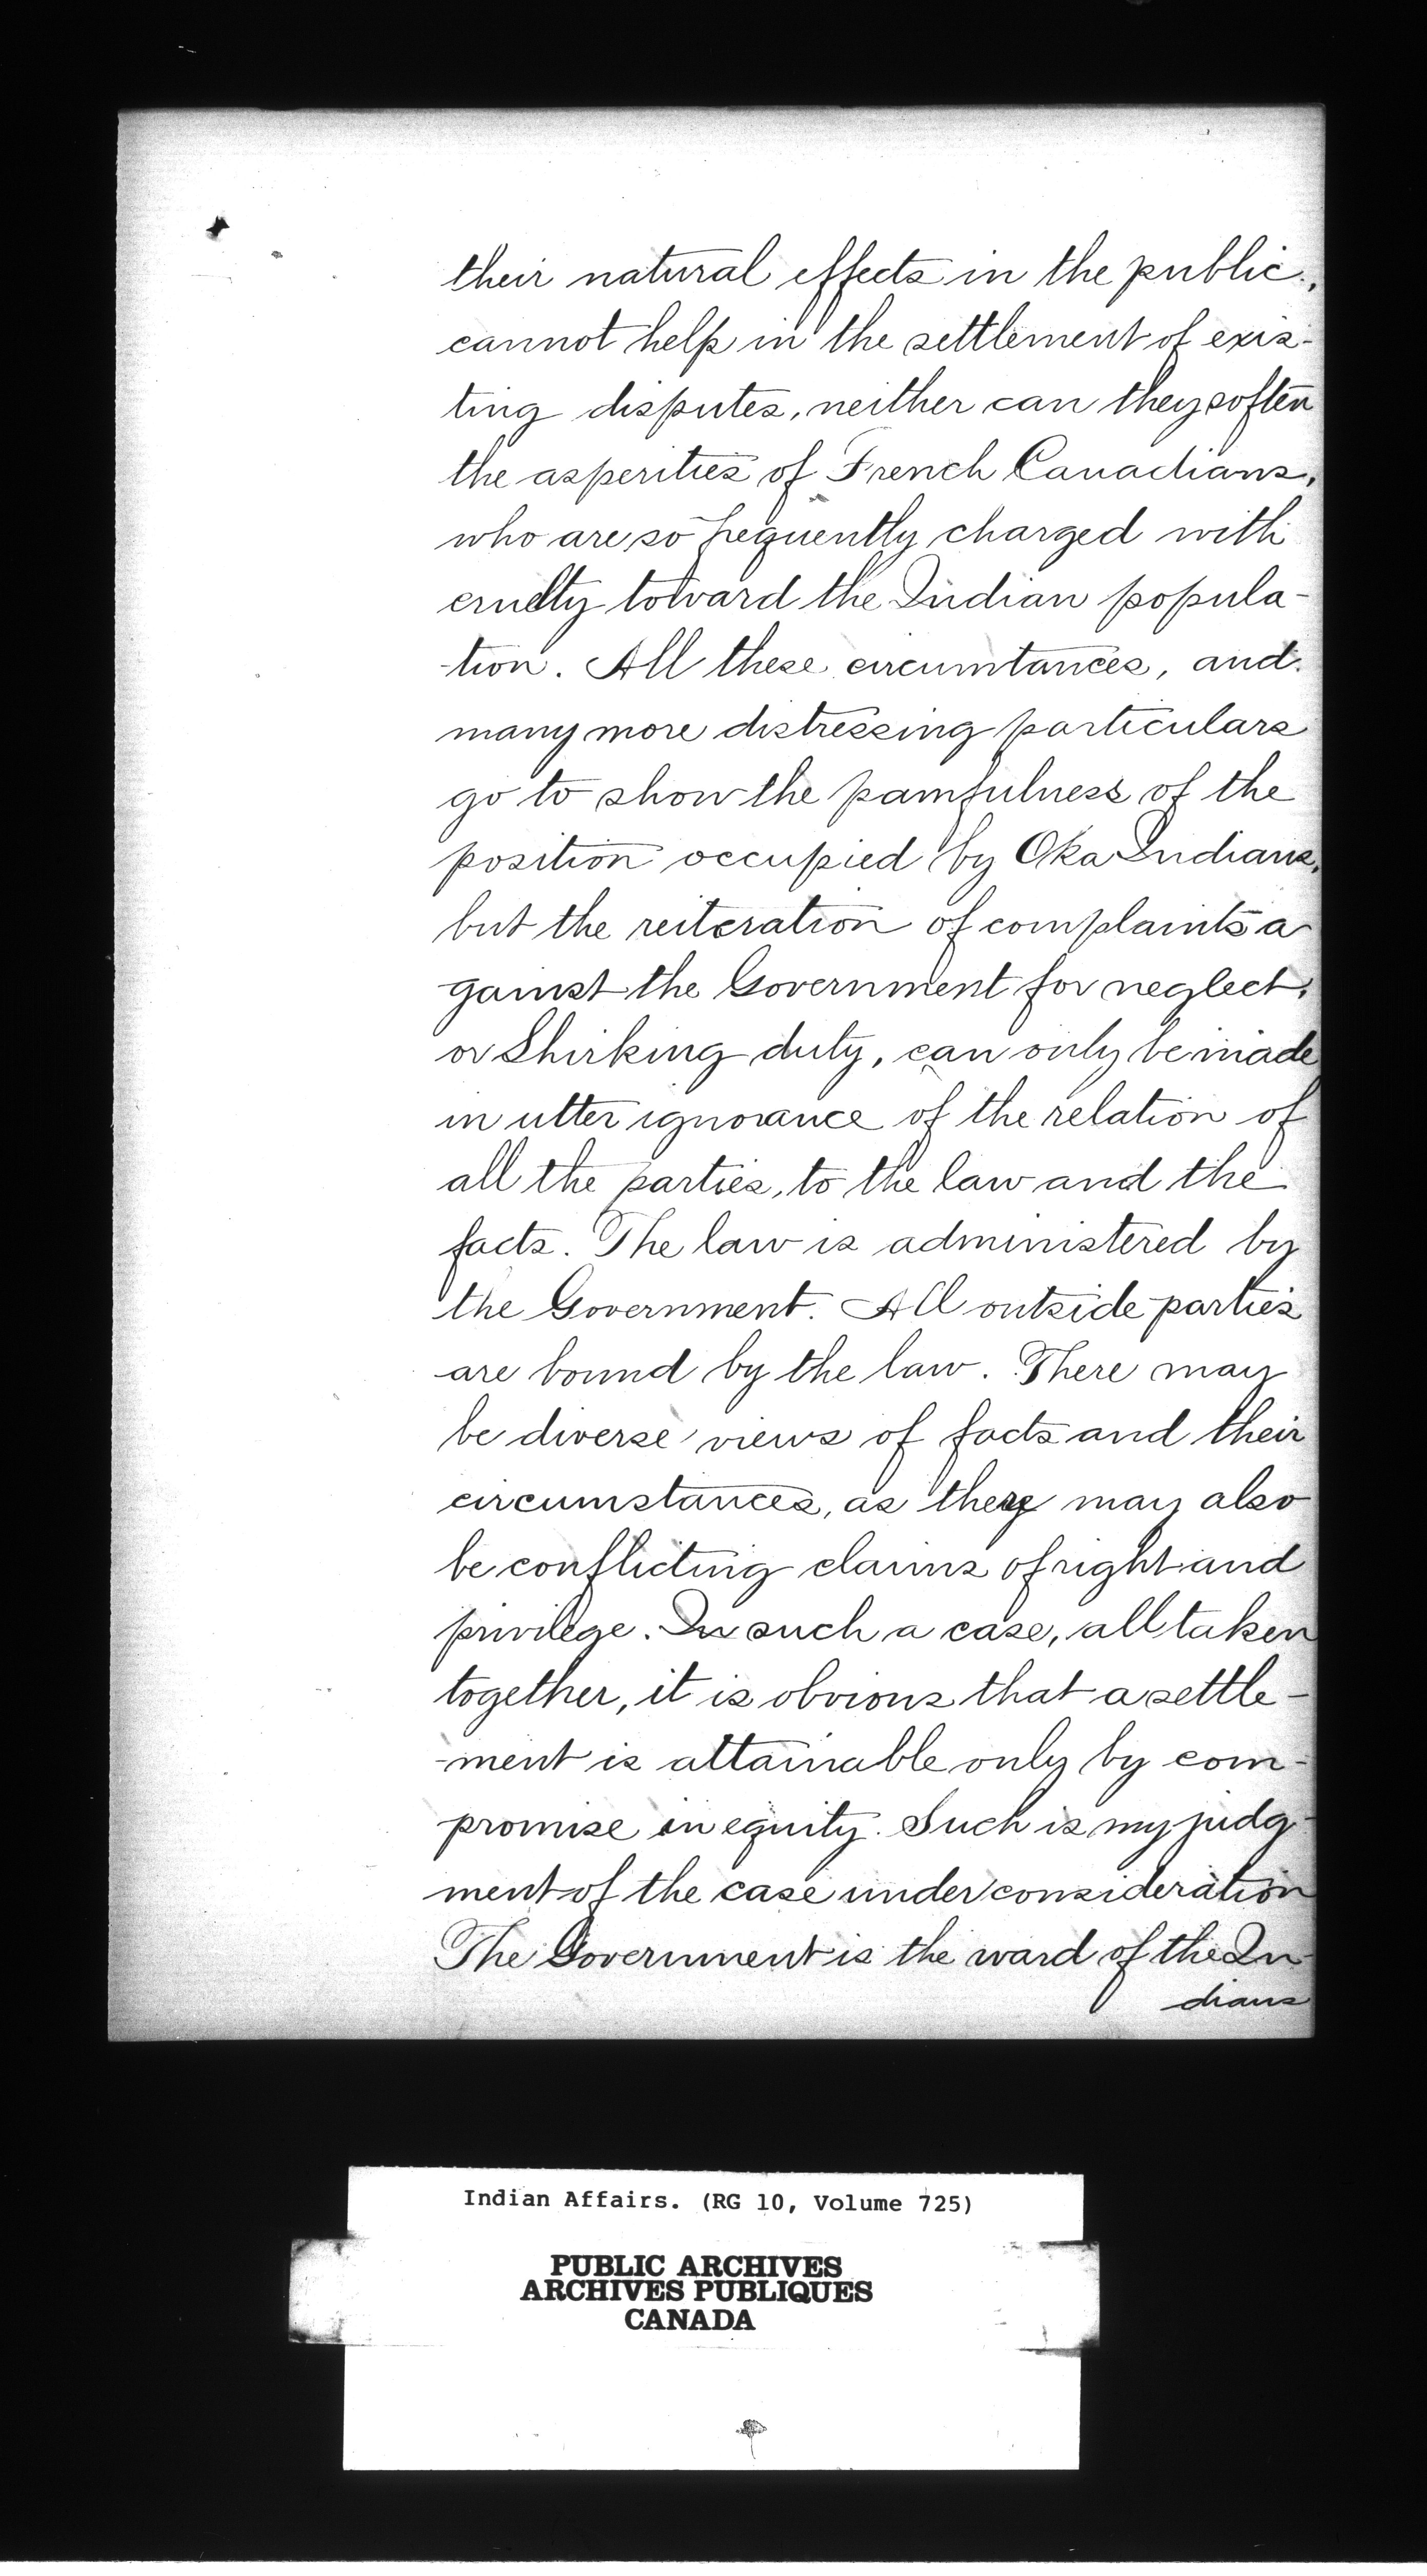 their natural effects in the public,
cannot help in the settlement of exis-
ting disputes, neither can they soften
the asperities of French Canadians,
who are so frequently charged with
cruelty toward the Indian popula-
-tion. All these circumtances, and
many more distressing particulars
go to show the painfulness of the
position occupied by Oka Indians,
but the reiteration of complaints a
gainst the Government for neglect,
or Shirking duty, can only be made
in utter ignorance of the relation of
all the parties, to the law and the
facts. The law is administered by
the Government. All outside parties
are bound by the law. There may
be diverse views of facts and their
circumstances, as there may also
be conflicting claims of right and
privilege. In such a case, all taken
together, it is obvious that a settle-
-ment is attainable only by com-
promise in equity. Such is my judg-
ment of the case under consideration
The Government is the ward of the In-
dians
Indian Affairs. (RG 10, Volume 725)
PUBLIC ARCHIVES
ARCHIVES PUBLIQUES
CANADA